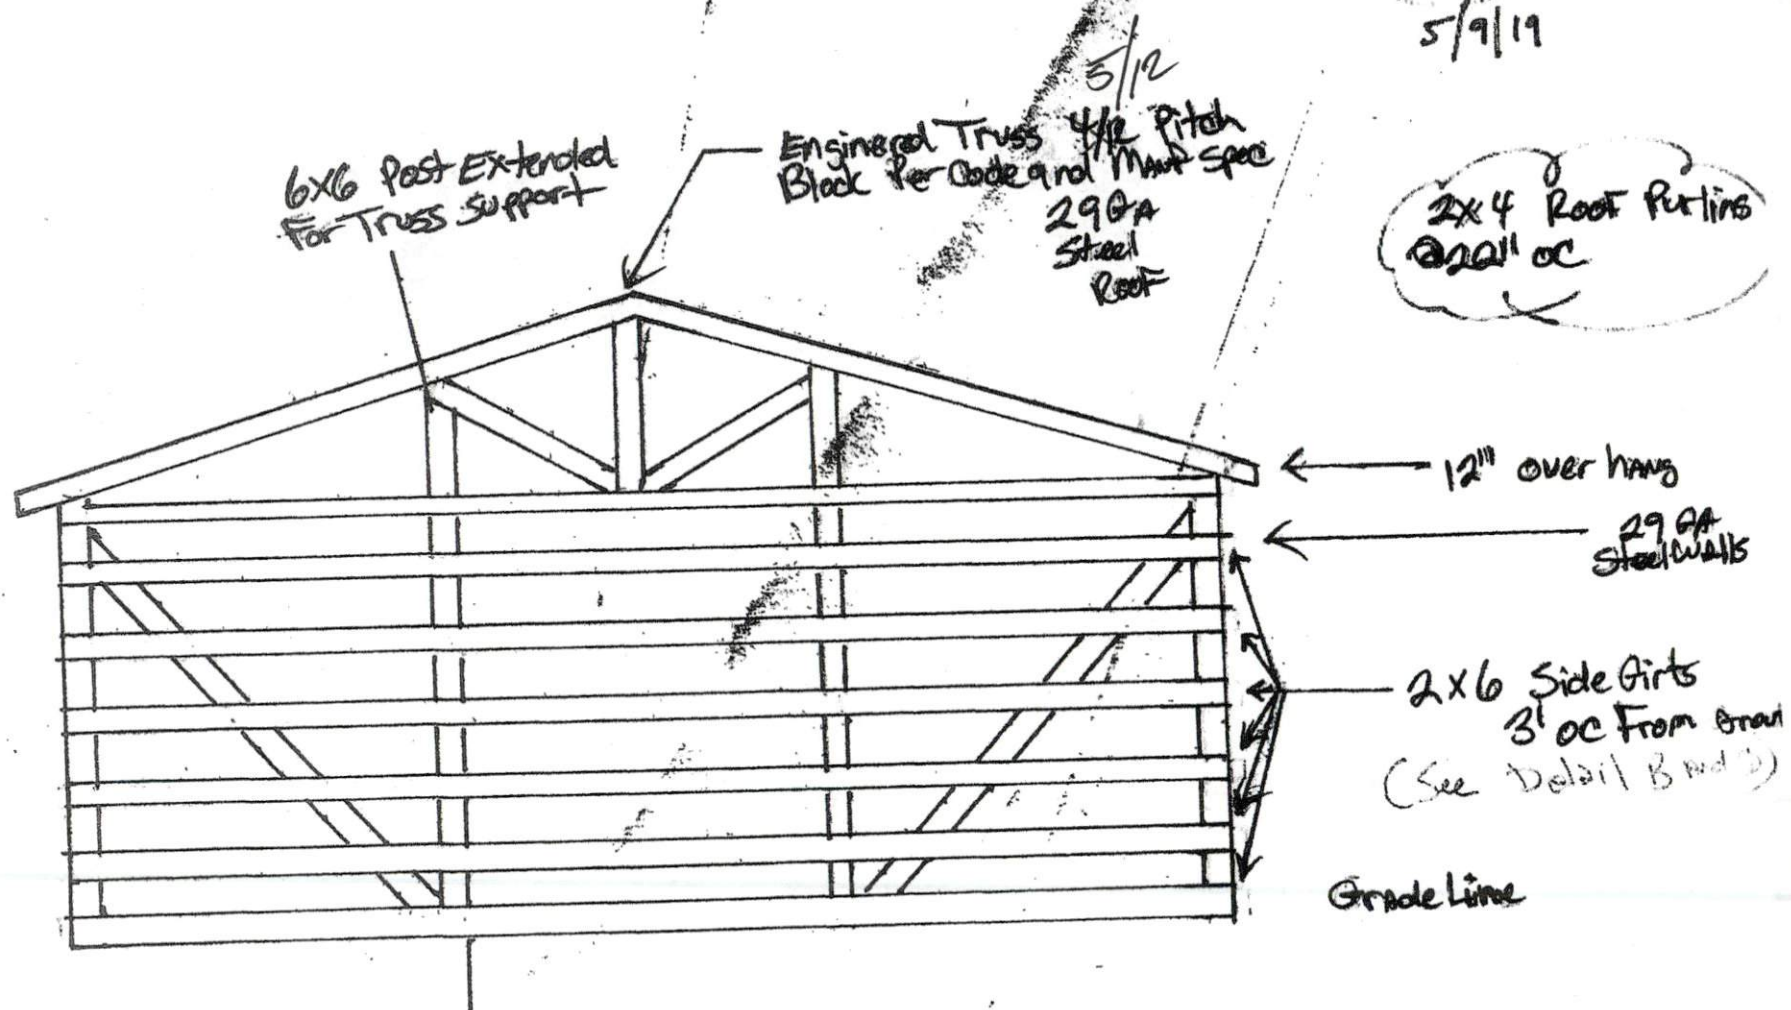 5/9/19
5/12
6x6 Post Extended
For Truss Support
Enginered Truss 4/12 Pitch
Block Per Code and Manf Spec
29 GA
Steel
Roof
2x4 Roof Purlins
@ OC
12" over hang
29 GA
Steel Walls
2x6 Side Girts
3' OC From
(See Detail B and
Grade Line